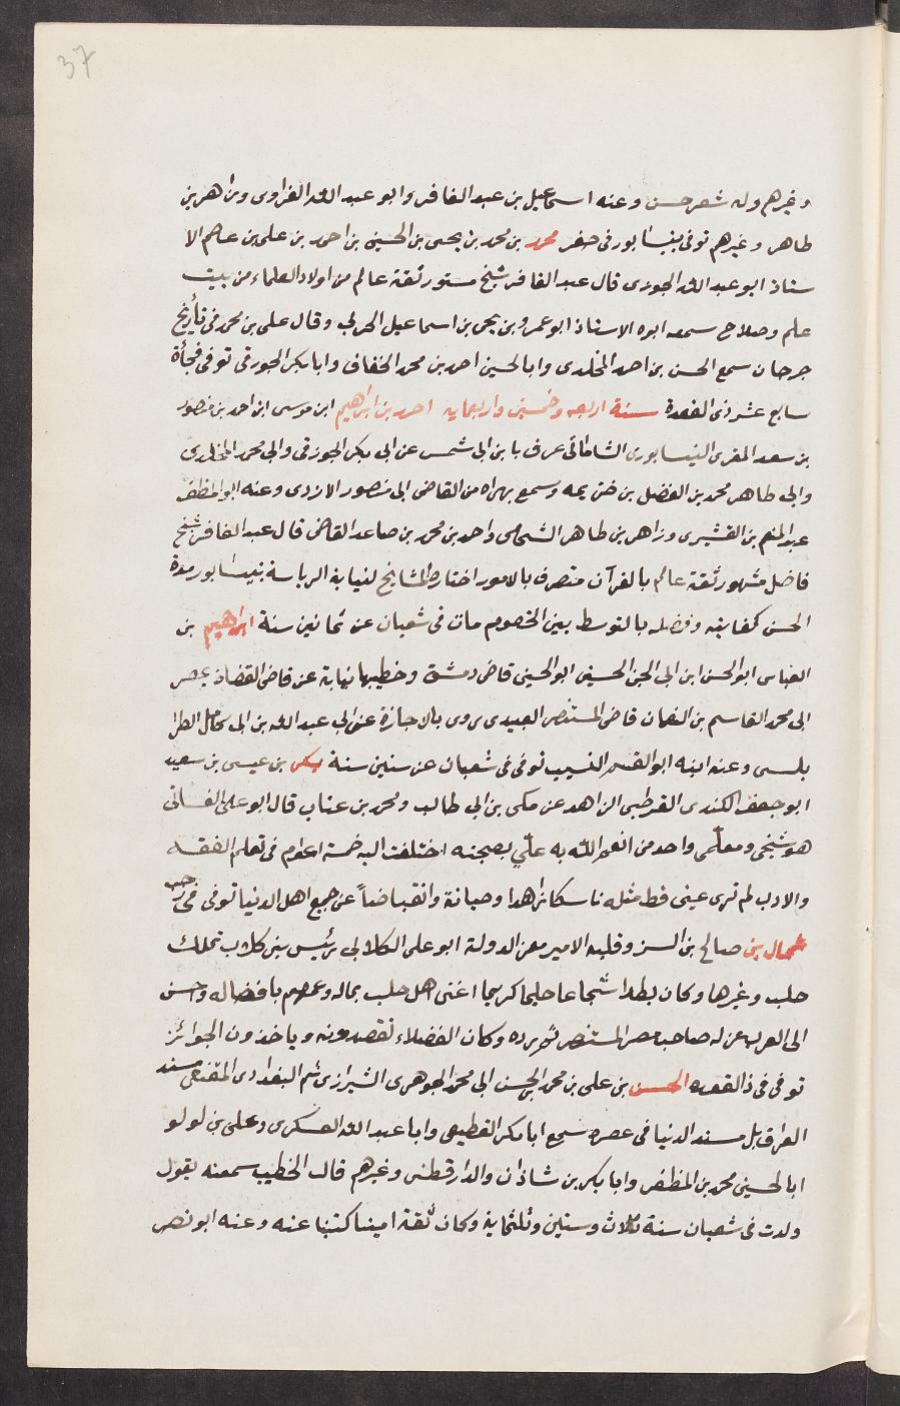 37
وغيرهم وله شعر حسن وعنه اسماعيل بن عبد الغافر وابو عبد الله الفراوى وزاهر بن
طاهر وغيرهم توفى بنيسابور فى صفر محمد بن محمد بن يحيى بن الحسين بن احمد بن على بن عاصم الا
ستاذ ابو عبد الله الجورى قال عبد الغافر شيخ مستور ثقة عالم من اولاد العلماء من بيت
علم وصلاح سمعه ابوه الاستاذ ابو عمرو بن يحيى بن اسماعيل الحربى وقال على بن محمد فى تأريخ
جرجان سمع الحسن بن احمد المخلدى وابا الحسين احمد بن محمد الخفاف وابا بكر الجوزقى توفى فجأة
سابع عشر ذى القعدة سنة اربعه وخمسين واربعمايه احمد بن ابراهيم ابن موسى ابن احمد بن منصور
بن سعد المقرى النيسابورى الشاماتى عرف بابن ابى شمس عن ابى بكر الجوزقى وابى محمد المخلدى
وابى طاهر محمد بن الفضل بن خزيمه وسمع بهراه من القاضى ابى منصور الازدى وعنه ابو المظفر
عبد المنعم بن القشيرى وزاهر بن طاهر الشحامى واحمد بن محمد بن صاعد القاضى قال عبد الغافر شيخ
فاضل مشهور ثقة عالم بالقرآن متصرف بالامور اختاره المشايخ لنيابة الرياسة بنيسابور مدة
لحسن كفايته وفضله بالتوسط بين الخصوم مات فى شعبان عن ثمانين سنة ابراهيم بن
العباس ابو الحسن ابن ابى الجن الحسينى ابو الحسين قاضى دمشق وخطيبها نيابة عن قاضى القضاة بمصر
ابى محمد القاسم بن النعمان قاضى المستنصر العبيدى يروى بالاجازة عن ابى عبد الله بن ابى كامل الطرا
بلسى وعنه ابنه ابو القسم النسيب توفى فى شعبان عن ستين سنة بكر بن عيسى بن سعيد
ابو جعفر الكندى القرطبى الزاهد عن مكى بن ابى طالب ومحمد بن عتاب قال ابو على الغسانى
هو شيخى ومعلمى واحد من انعم الله به علي بصحبته اختلفت اليه خمسة اعوام فى تعلم الفقه
والادب لم ترى عينى قط مثله ناسكا زاهدا وصيانة وانقباضاً عن جميع اهل الدنيا توفى فى رجب
ثمال بن صالح بن الزوقليه الامير معز الدولة ابو على الكلابى رئيس بنى كلاب تملك
حلب وغيرها وكان بطلا شجاعا حليما كريما اغنى اهل حلب بماله وعمهم بافضاله واحسن
الى العرب عزله صاحب مصر المستنصر ثم رده وكان الفضلاء يقصدونه وياخذون الجوائز
توفى فى ذالقعده الحسن بن على بن محمد بن الحسن ابى محمد الجوهرى الشيرازى ثم البغدادى المقنعى مسند
العراق بل مسند الدنيا فى عصره سمع ابا بكر القطيعى وابا عبد الله العسكرى وعلى بن لولو
ابا الحسين محمد بن المظفر وابا بكر بن شاذان والدارقطنى وغيرهم قال الخطيب سمعته يقول
ولدت فى شعبان سنة ثلاث وستين وثلثماية وكان ثقة امينا كتبنا عنه وعنه ابو نصر